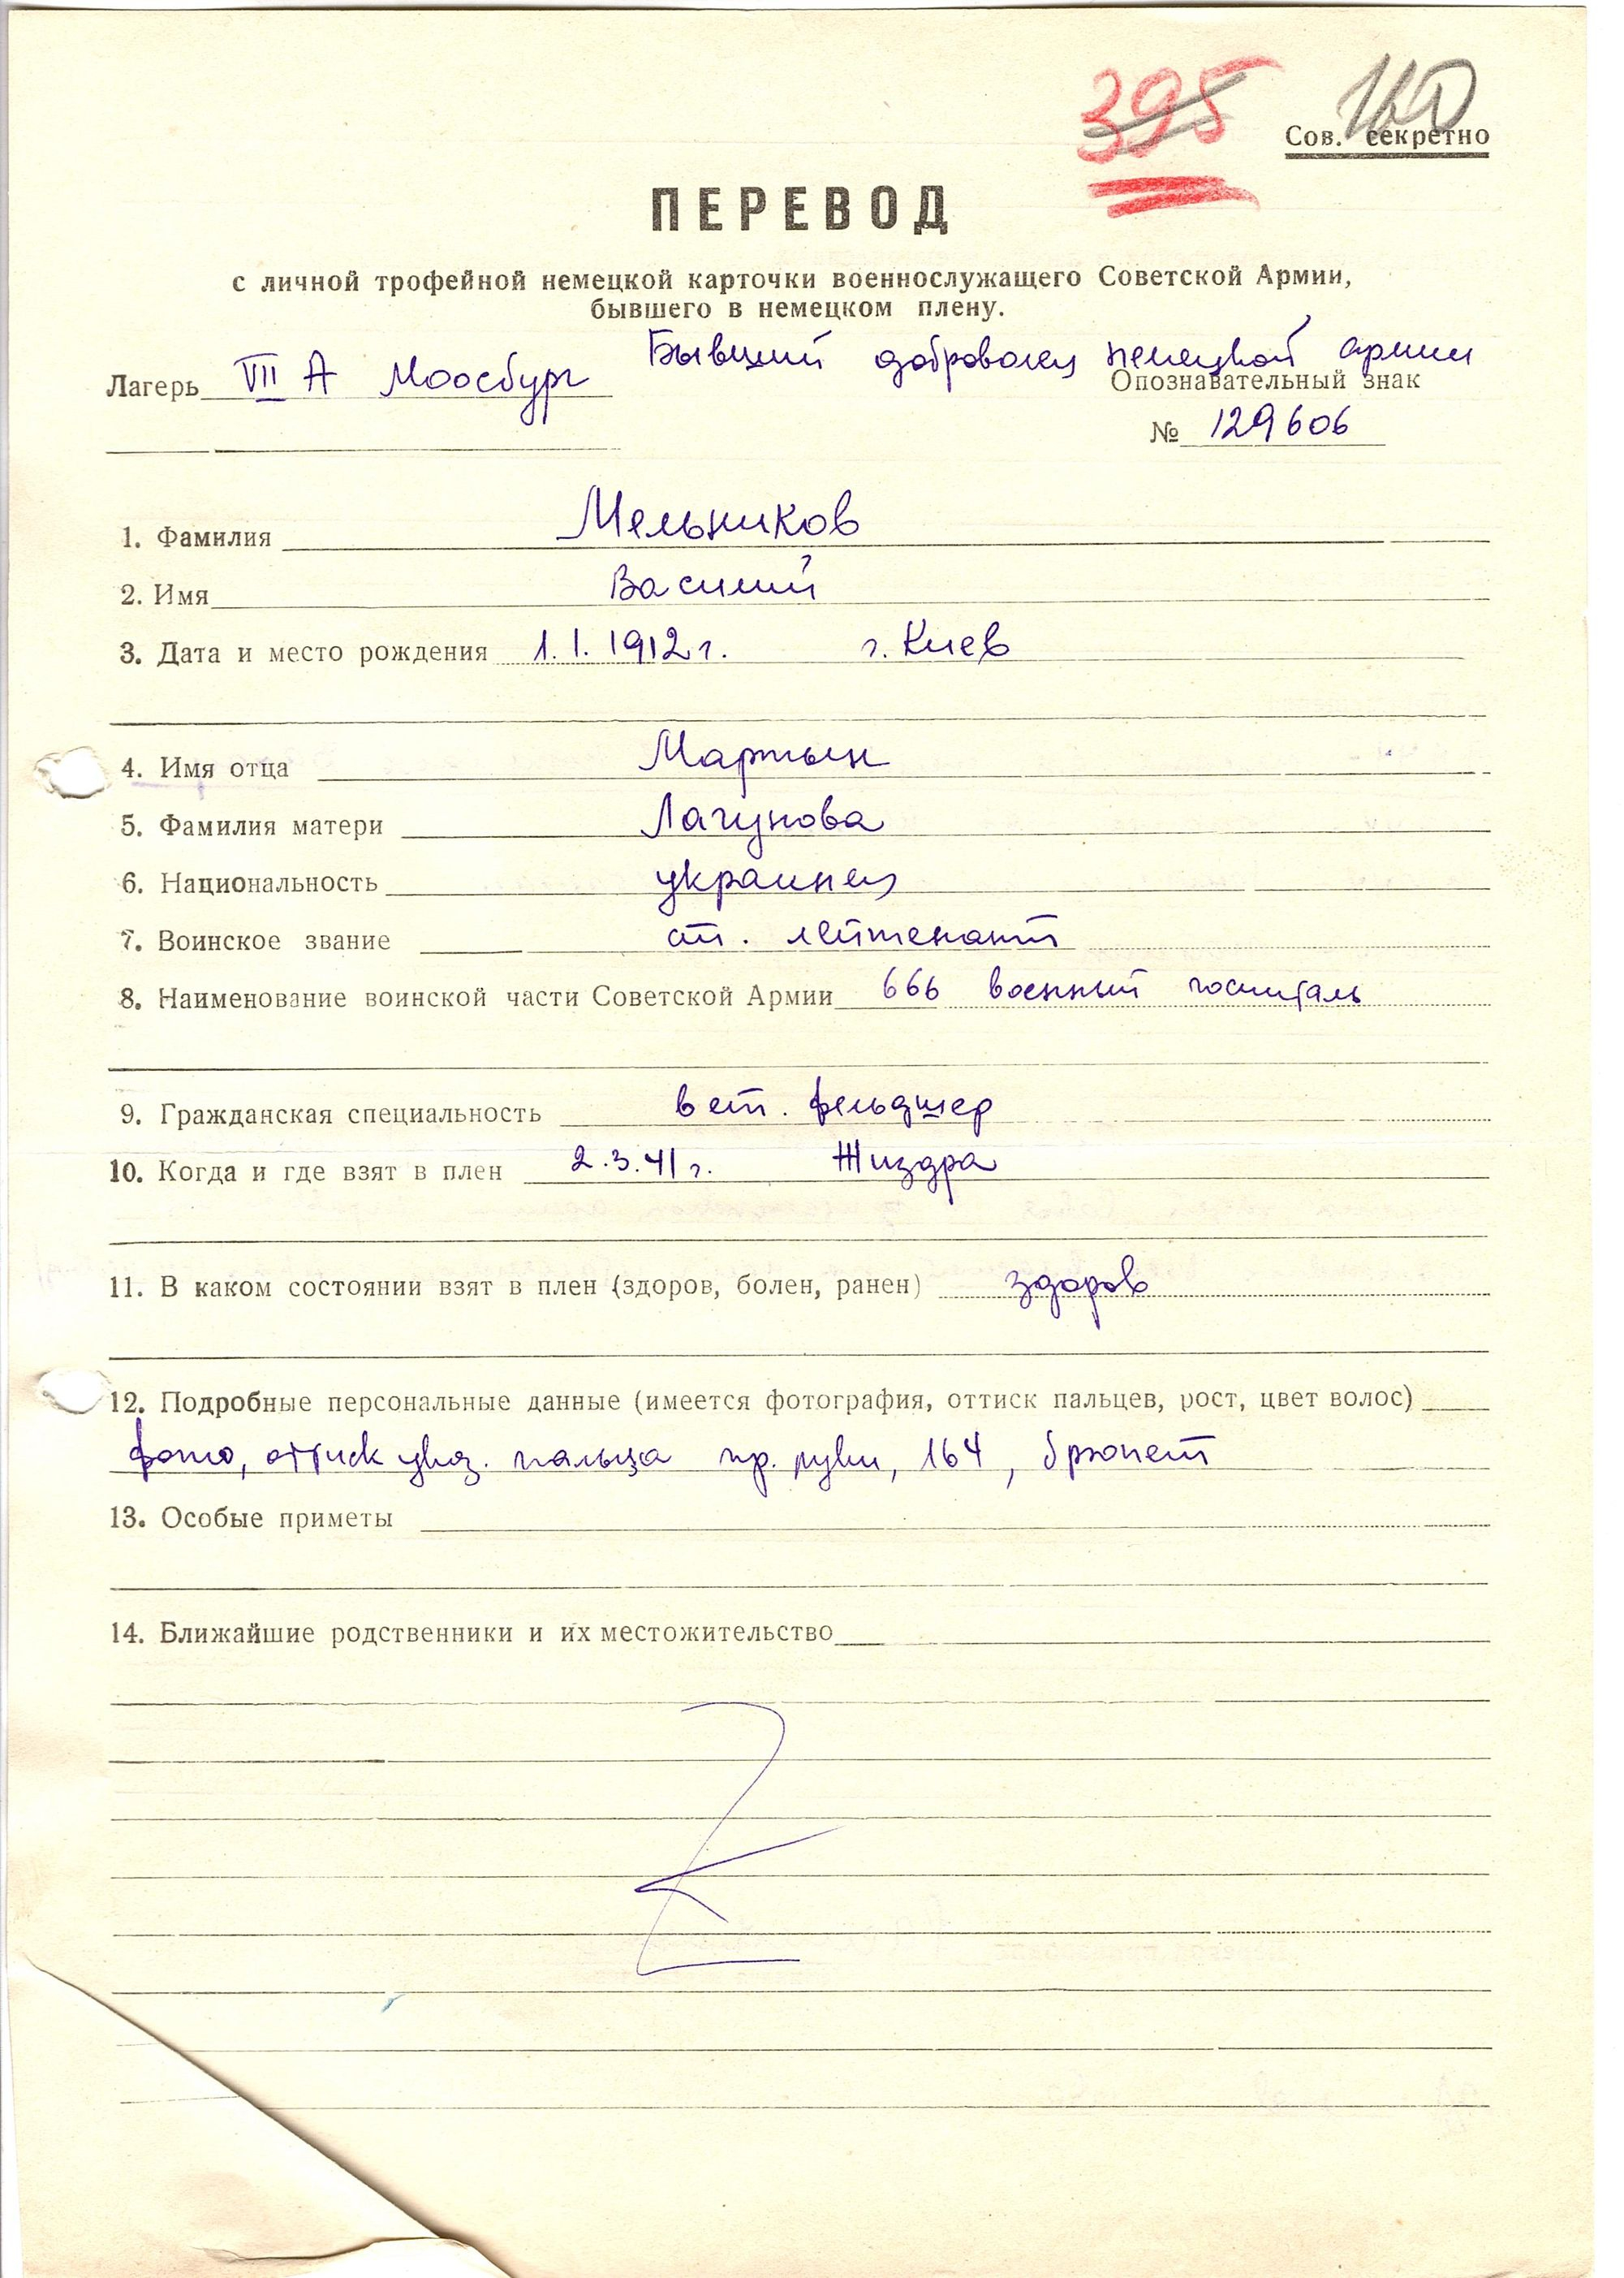 395 160
Сов. секретно
ПЕРЕВОД
с личной трофейной немецкой карточки военнослужащего Советской Армии,
бывшего в немецком плену.
Бывший доброволец немецкой армии
Лагерь VII А Моосбург
Опознавательный знак
№ 129606
1. Фамилия Мельников
2. Имя Василий
3. Дата и место рождения 1.1.1912г. г. Киев
4. Имя отца Мартын
5. Фамилия матери Лагунова
6. Национальность украинец
7. Воинское звание ст. лейтенант
8. Наименование воинской части Советской Армии 666 военный госпиталь
9. Гражданская специальность вет. фельдшер
10. Когда и где взят в плен 2.3.41г. Жиздра
11. В каком состоянии взят в плен (здоров, болен, ранен) здоров
12. Подробные персональные данные (имеется фотография, оттиск пальцев, рост, цвет волос)
фото, оттиск указ. пальца пр. руки, 164, брюнет
13. Особые приметы
14. Ближайшие родственники и их местожительство